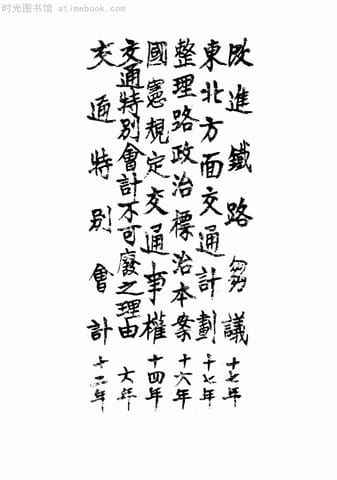 时光图书馆 atimebook.com
改進鐵路芻議 十七年
東北方面交通計劃 十七年
整理路政治標治本案 十六年
國憲規定交通事權 十四年
交通特別會計不可廢之理由 六年
交通特別會計 十二年